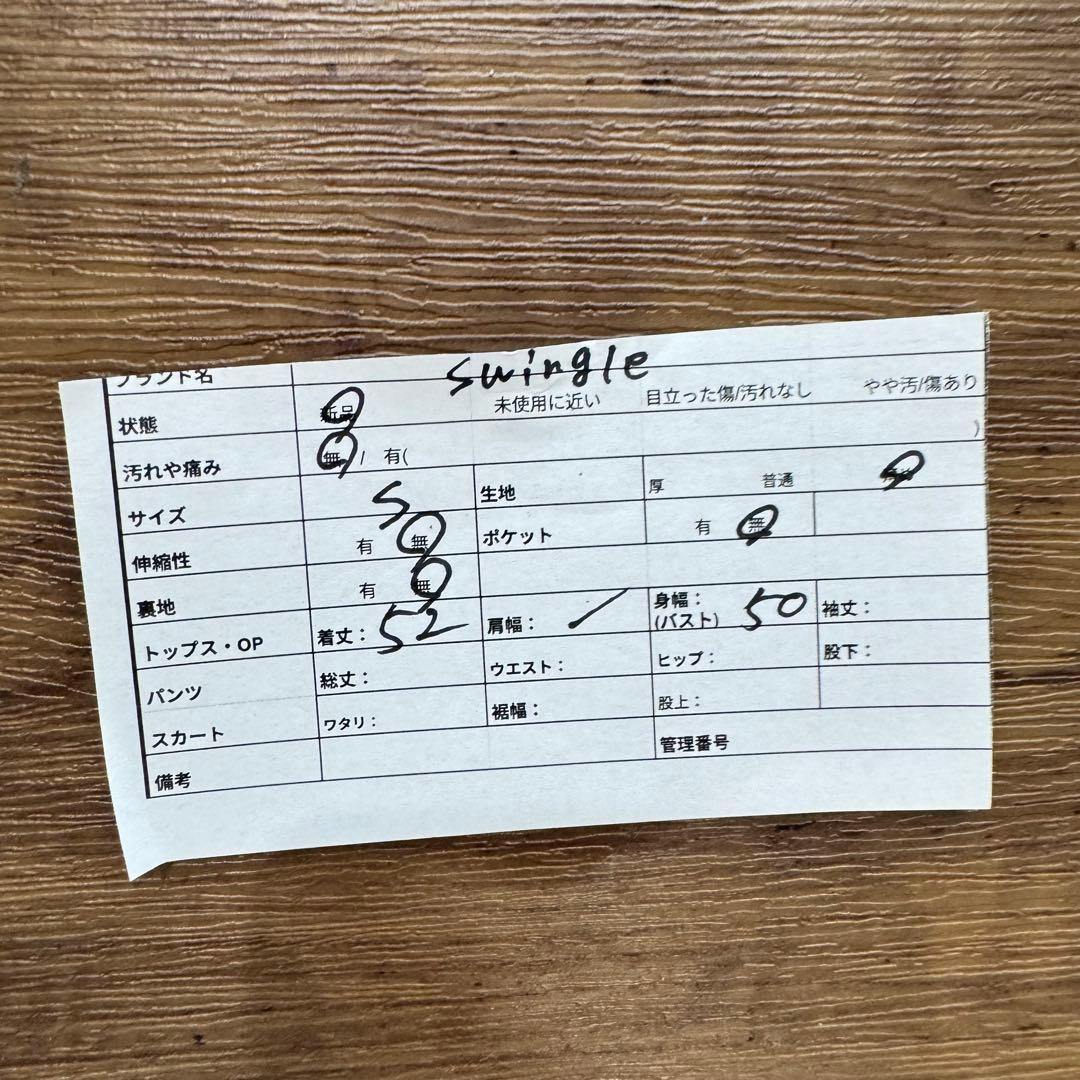 ブランド名 swingle
状態 新品 未使用に近い 目立った傷/汚れなし やや汚/傷あり
汚れや痛み 無 / 有( )
サイズ S 生地 厚 普通
伸縮性 有 無 ポケット 有 無
裏地 有 無
トップス・OP 着丈: 52 肩幅: / 身幅: (バスト) 50 袖丈:
パンツ 総丈: ウエスト: ヒップ: 股下:
スカート ワタリ: 裾幅: 股上:
備考 管理番号